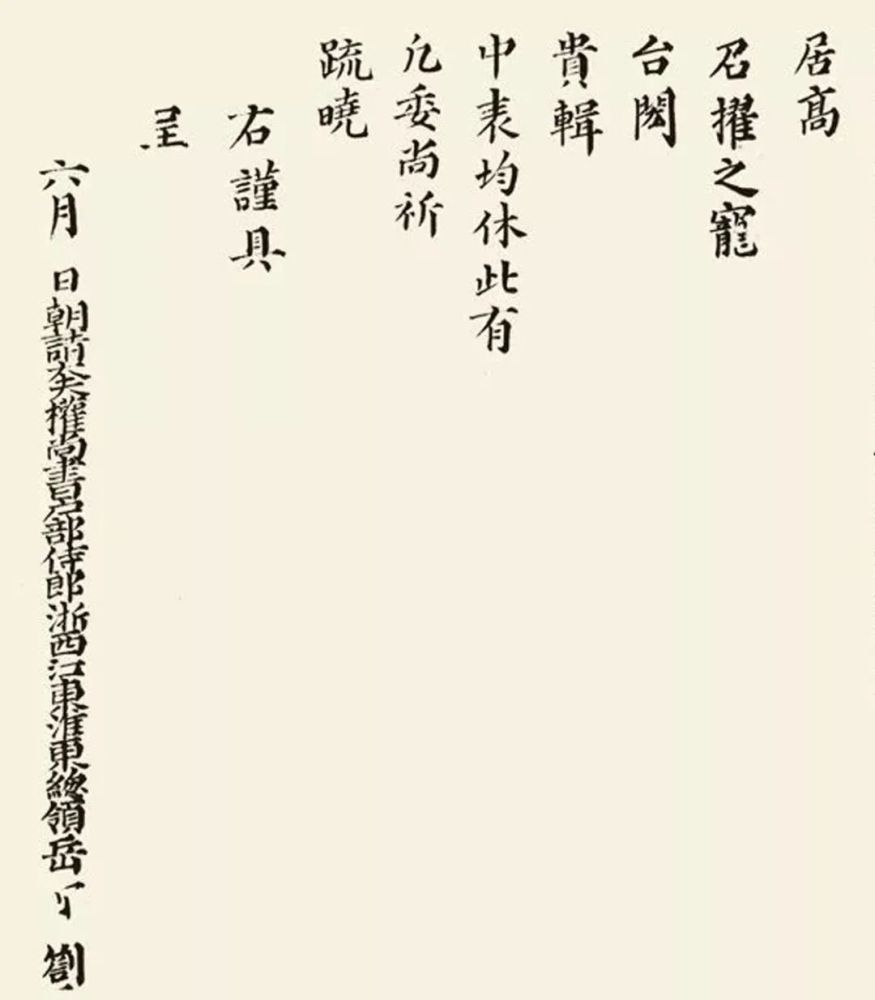 居高
召擢之寵
台閫
貴輯
中表均休此有
凡委尚祈
䟽曉
右謹具
呈
六月 日朝請大夫權尚書户部侍郎浙西江東淮東總領岳 劄